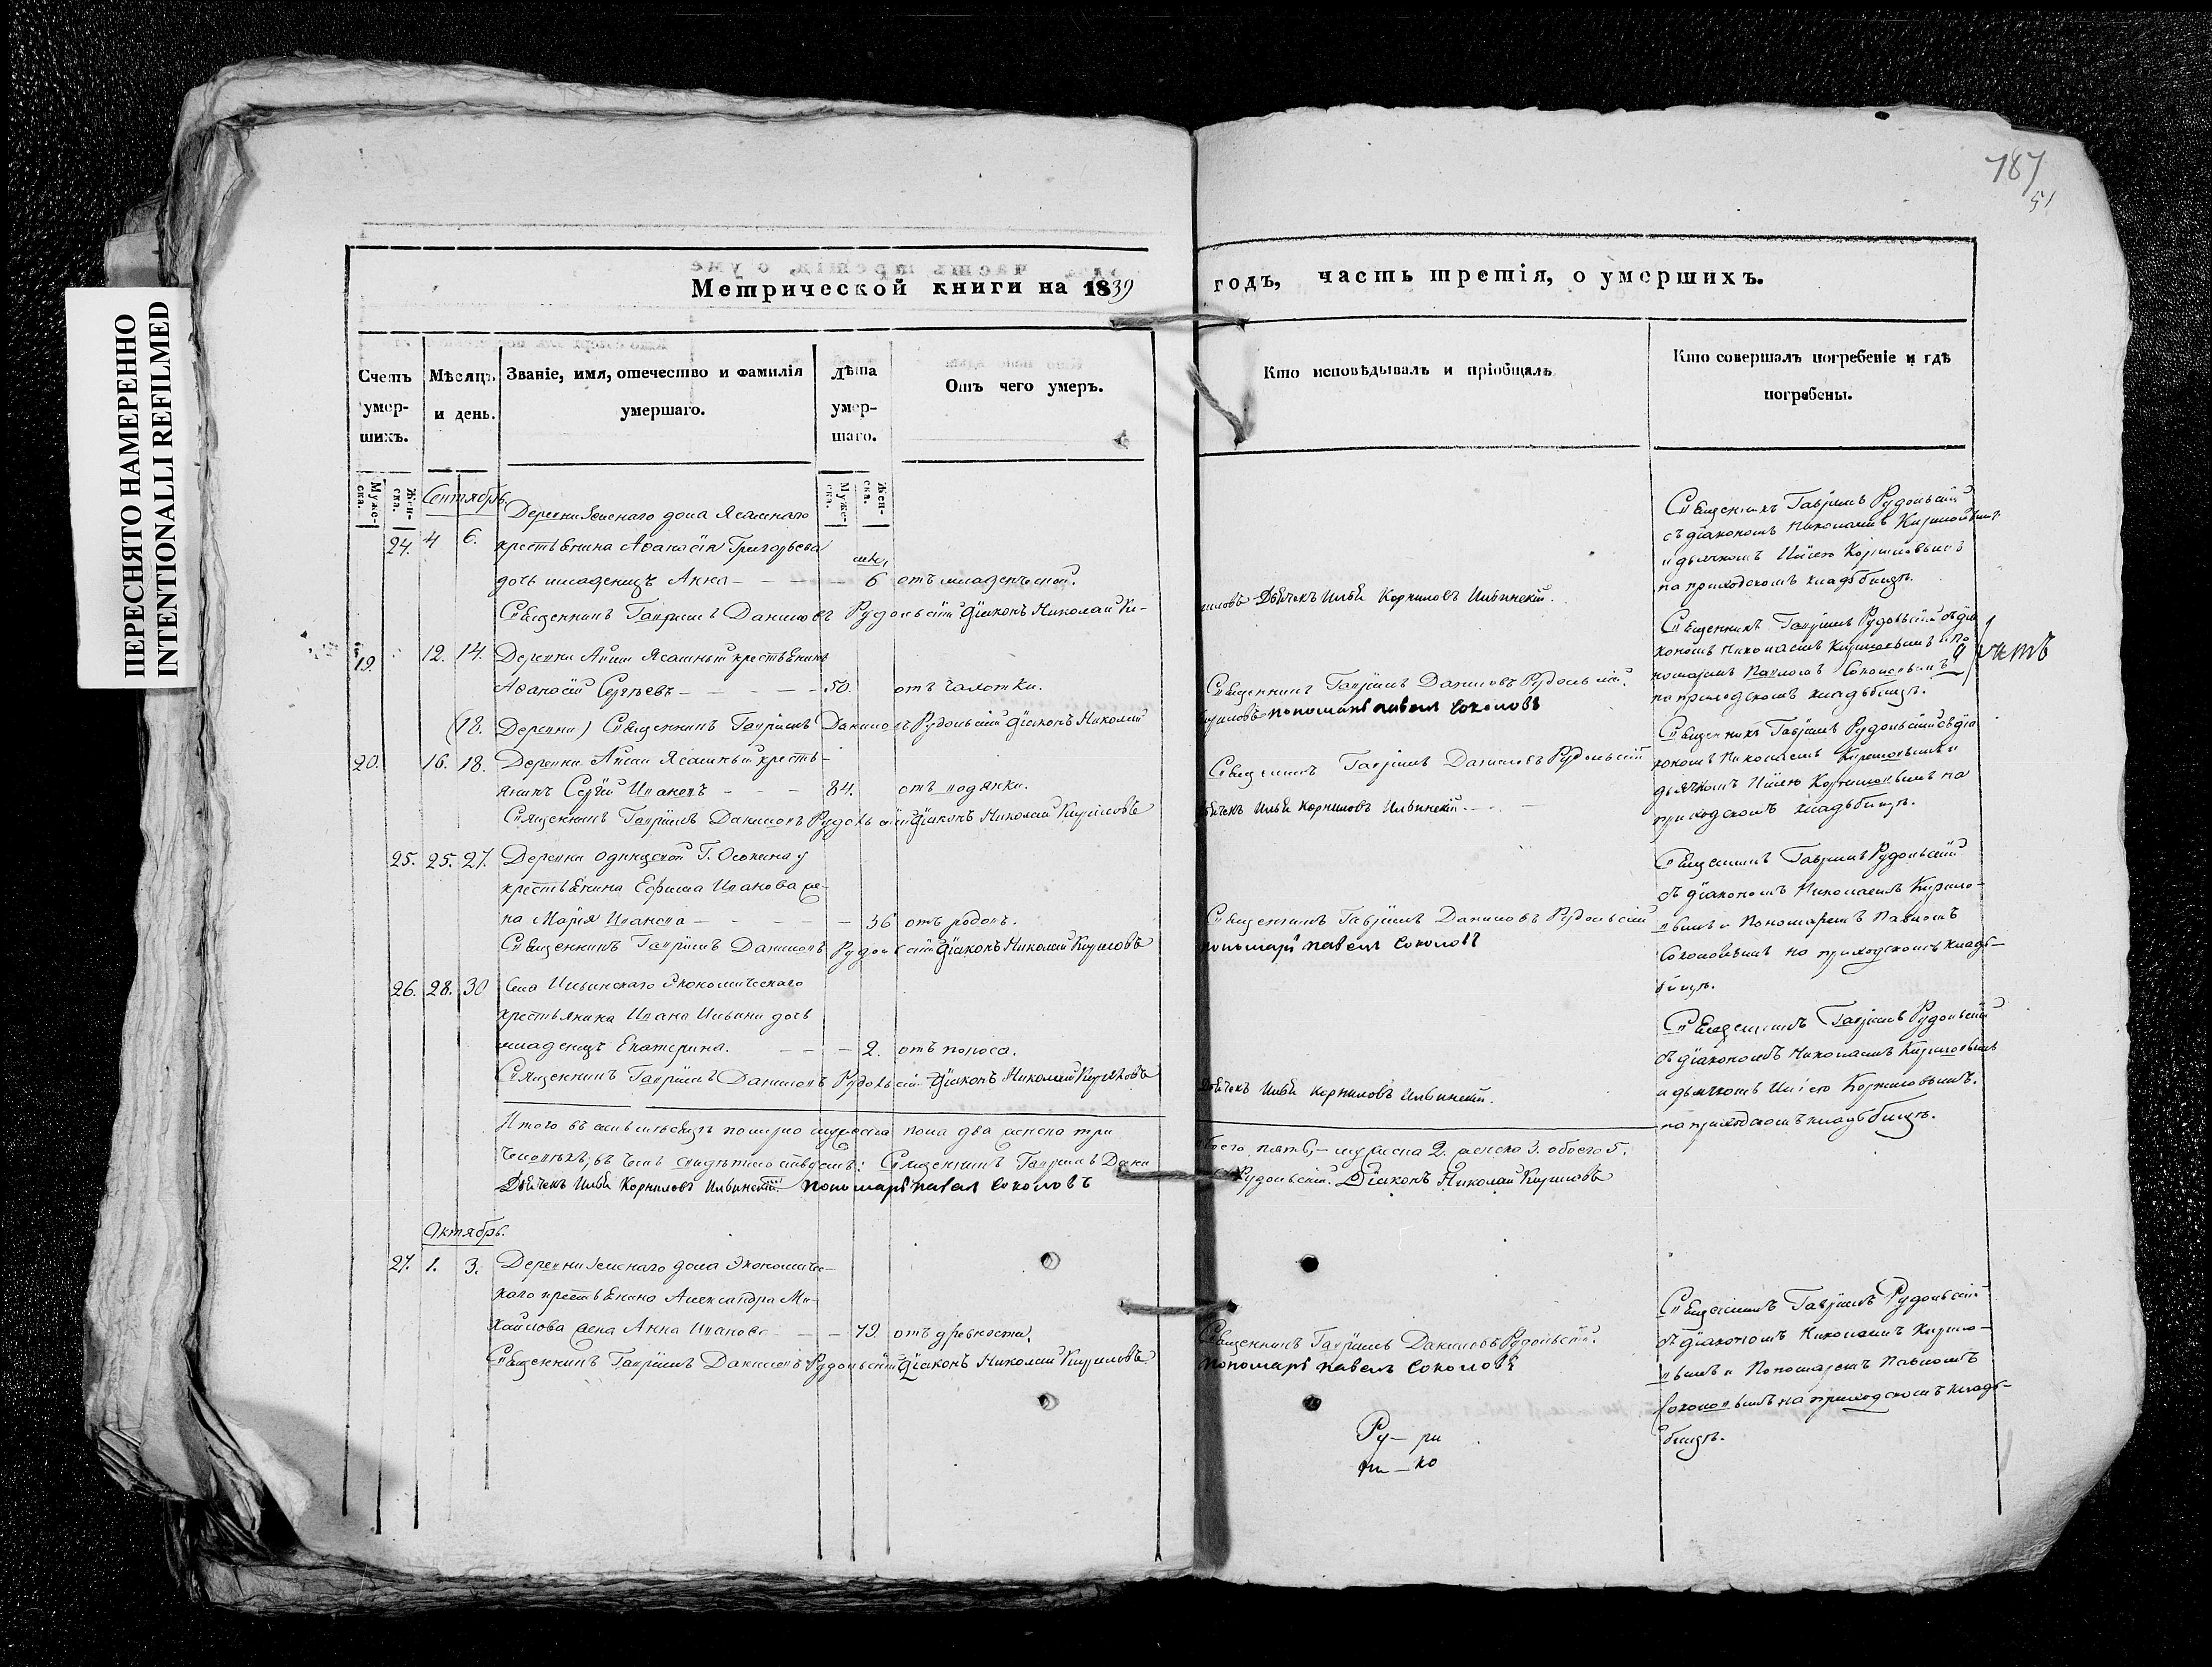 ПЕРЕСНЯТО НАМЕРЕННО
INTENTIONALLI REFILMED
187
51
Метрической книги на 1839
годъ, часть третія, о умершихъ.
Счетъ умер-шихъ.
Мѣсяцъ и день.
Званіе, имя, отечество и фамилія умершаго.
Лѣта умер-шаго.
Отъ чего умеръ.
Кто исповѣдывалъ и пріобщалъ
Кто совершалъ погребеніе и гдѣ погребены.
Муже-ска.
Жен-ска.
Муже-ска.
Жен-ска.
Сентябрь.
Деревни Земскаго дома Ясашнаго
24. 4 6. крестьянина Афанасія Григорьева
дочь младенецъ Анна - - - 6 отъ младенческой.
Священникъ Гавріилъ Даниловъ Рудольскій Діаконъ Николай Ки-
риловъ Дьячекъ Илья Корниловъ Ильинскій.
Священникъ Гавріилъ Рудольскій
съ діакономъ Николаемъ Кириловымъ
и дьячкомъ Ильею Корниловымъ
на приходскомъ кладбищѣ.
19. 12. 14. Деревни Ясашный крестьянинъ
Афанасій Сергѣевъ - - - - 50. отъ чахотки.
Священникъ Гавріилъ Даниловъ Рудольскій.
(18. Деревни) Священникъ Гавріилъ Даниловъ Рудольскій Діаконъ Николай
Кириловъ пономарь павелъ соколовъ
Священникъ Гавріилъ Рудольскій съ діа
кономъ Николаемъ Кириловымъ и по
номаремъ Павломъ Соколовымъ
на приходскомъ кладбищѣ.
20. 16. 18. Деревни Ясашный кресть-
янинъ Сергѣй Ивановъ - - - 84. отъ водянки.
Священникъ Гавріилъ Даниловъ Рудольскій
Священникъ Гавріилъ Даниловъ Рудольскій Діаконъ Николай Кириловъ
Дьячекъ Илья Корниловъ Ильинскій.
Священникъ Гавріилъ Рудольскій съ діа
кономъ Николаемъ Кириловымъ и
дьячкомъ Ильею Корниловымъ на
приходскомъ кладбищѣ.
25. 25. 27. Деревни Одинцской Г. Осокина
крестьянина Ефима Иванова же-
на Марія Иванова - - - - 36 отъ родовъ.
Священникъ Гавріилъ Даниловъ Рудольскій
Священникъ Гавріилъ Даниловъ Рудольскій Діаконъ Николай Кириловъ
пономарь павелъ соколовъ
Священникъ Гавріилъ Рудольскій
съ діакономъ Николаемъ Кирило-
вымъ и Пономаремъ Павломъ
Соколовымъ на приходскомъ кладь-
бищѣ.
26. 28. 30 Села Ильинскаго Экономическаго
крестьянина Ивана Ильина дочь
младенецъ Екатерина. - - - 2. отъ поноса.
Священникъ Гавріилъ Даниловъ Рудольскій Діаконъ Николай Кириловъ
Дьячекъ Илья Корниловъ Ильинскій.
Священникъ Гавріилъ Рудольскій
съ діакономъ Николаемъ Кириловымъ
и дьячкомъ Ильею Корниловымъ.
на приходскомъ кладбищѣ.
Итого въ померло мужеска пола два женска три
обоего пять, - мужеска 2. женска 3. обоего 5.
въ чемъ свидѣтельствуемъ: Священникъ Гавріилъ Дани
ловъ Рудольскій. Діаконъ Николай Кириловъ
Дьячекъ Илья Корниловъ Ильинскій. пономарь павелъ соколовъ
Октябрь.
27. 1. 3. Деревни Земскаго дома Экономичес-
каго крестьянина Александра Ми-
хайлова жена Анна Иванова - - 79. отъ древности.
Священникъ Гавріилъ Даниловъ Рудольскій.
Священникъ Гавріилъ Даниловъ Рудольскій Діаконъ Николай Кириловъ
пономарь павелъ соколовъ
Священникъ Гавріилъ Рудольскій
съ діакономъ Николаемъ Кирило-
вымъ и Пономаремъ Павломъ
Соколовымъ на приходскомъ кладь-
бищѣ.
Ру- ри
ко